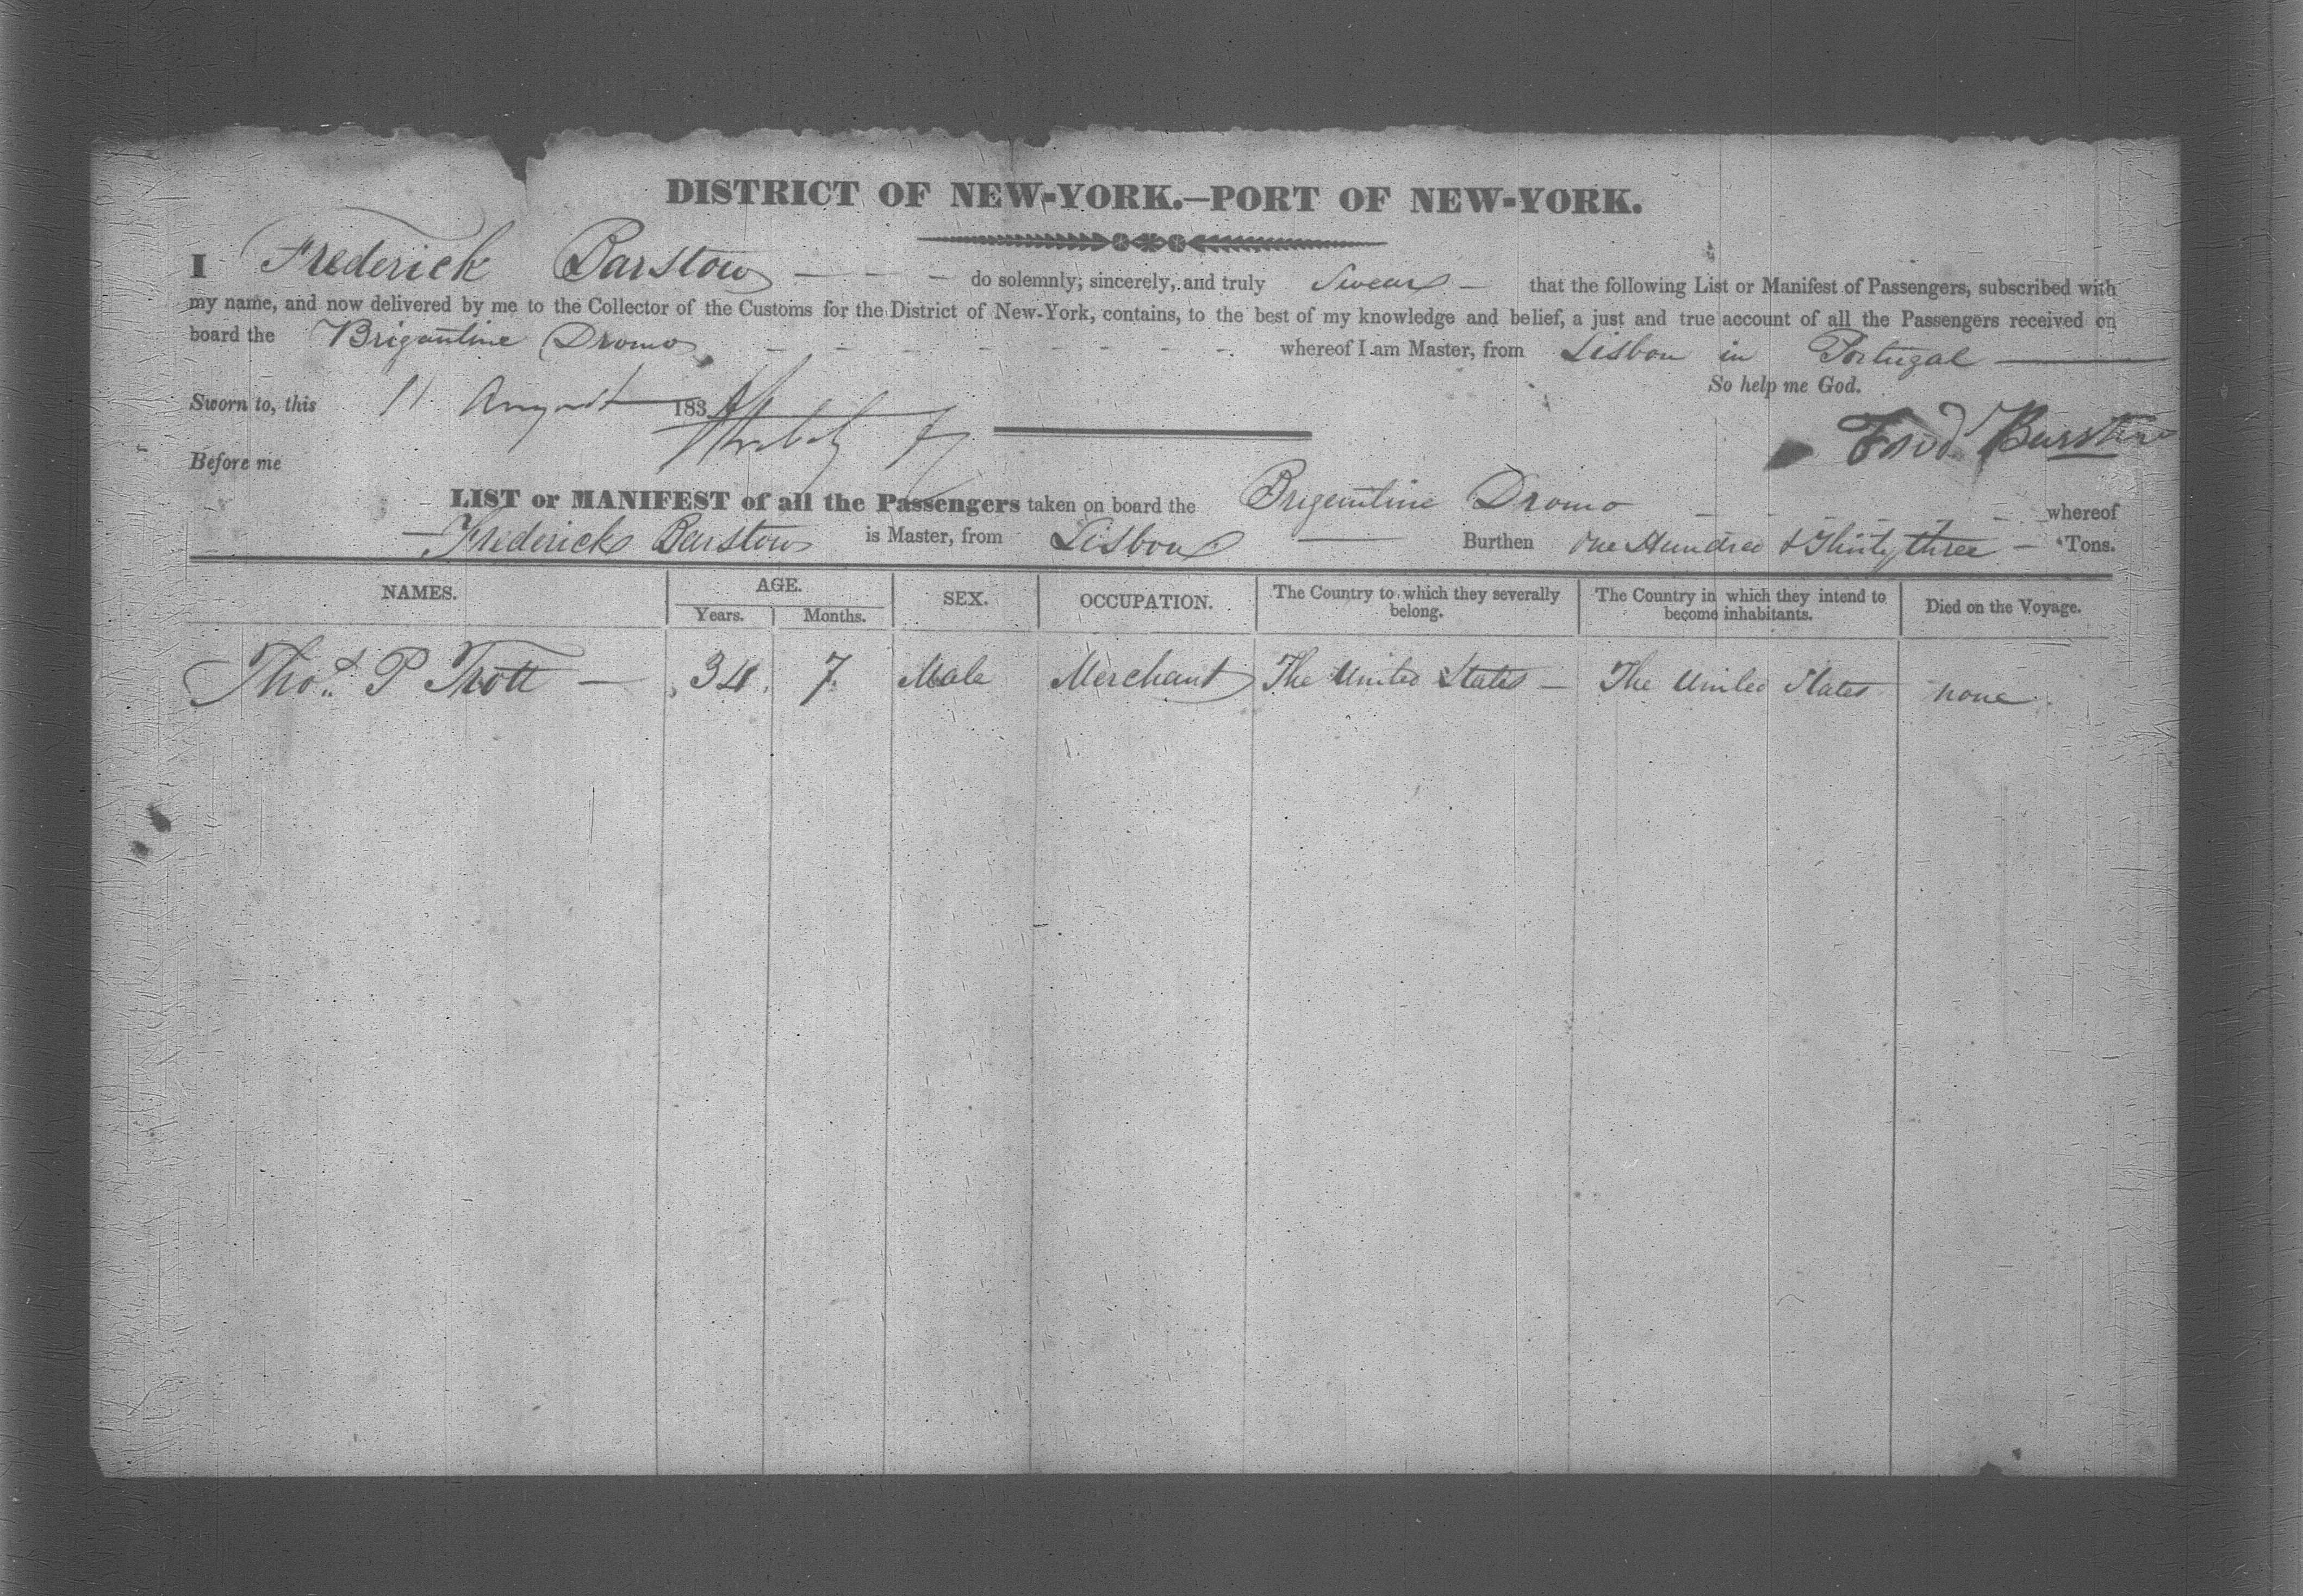 DISTRICT OF NEW-YORK.—PORT OF NEW-YORK.
I Frederick Barstow - - - do solemnly, sincerely, and truly Swear - that the following List or Manifest of Passengers, subscribed with
my name, and now delivered by me to the Collector of the Customs for the District of New-York, contains, to the best of my knowledge and belief, a just and true account of all the Passengers received on
board the Brigantine Dromo - - - - - - - - whereof I am Master, from Lisbon in Portugal —
So help me God.
Sworn to, this 11 August 183
Fred Barstow
Before me
LIST or MANIFEST of all the Passengers taken on board the Brigantine Dromo - - - - whereof
— Frederick Barstow is Master, from Lisbon — Burthen One Hundred & Thirty three — Tons.
NAMES. AGE. SEX. OCCUPATION. The Country to which they severally belong. The Country in which they intend to become inhabitants. Died on the Voyage.
Years. Months.
Thos. P Trott — 34 7 Male Merchant The United States — The United States none